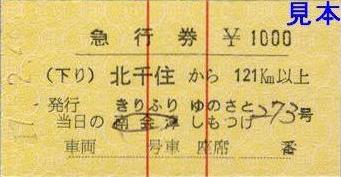 見本
急行券 ¥1000
(下り) 北千住 から 121Km以上
発行 きりふり ゆのさと 273号
当日の 南会津 しもつけ
車両 号車 座席 番